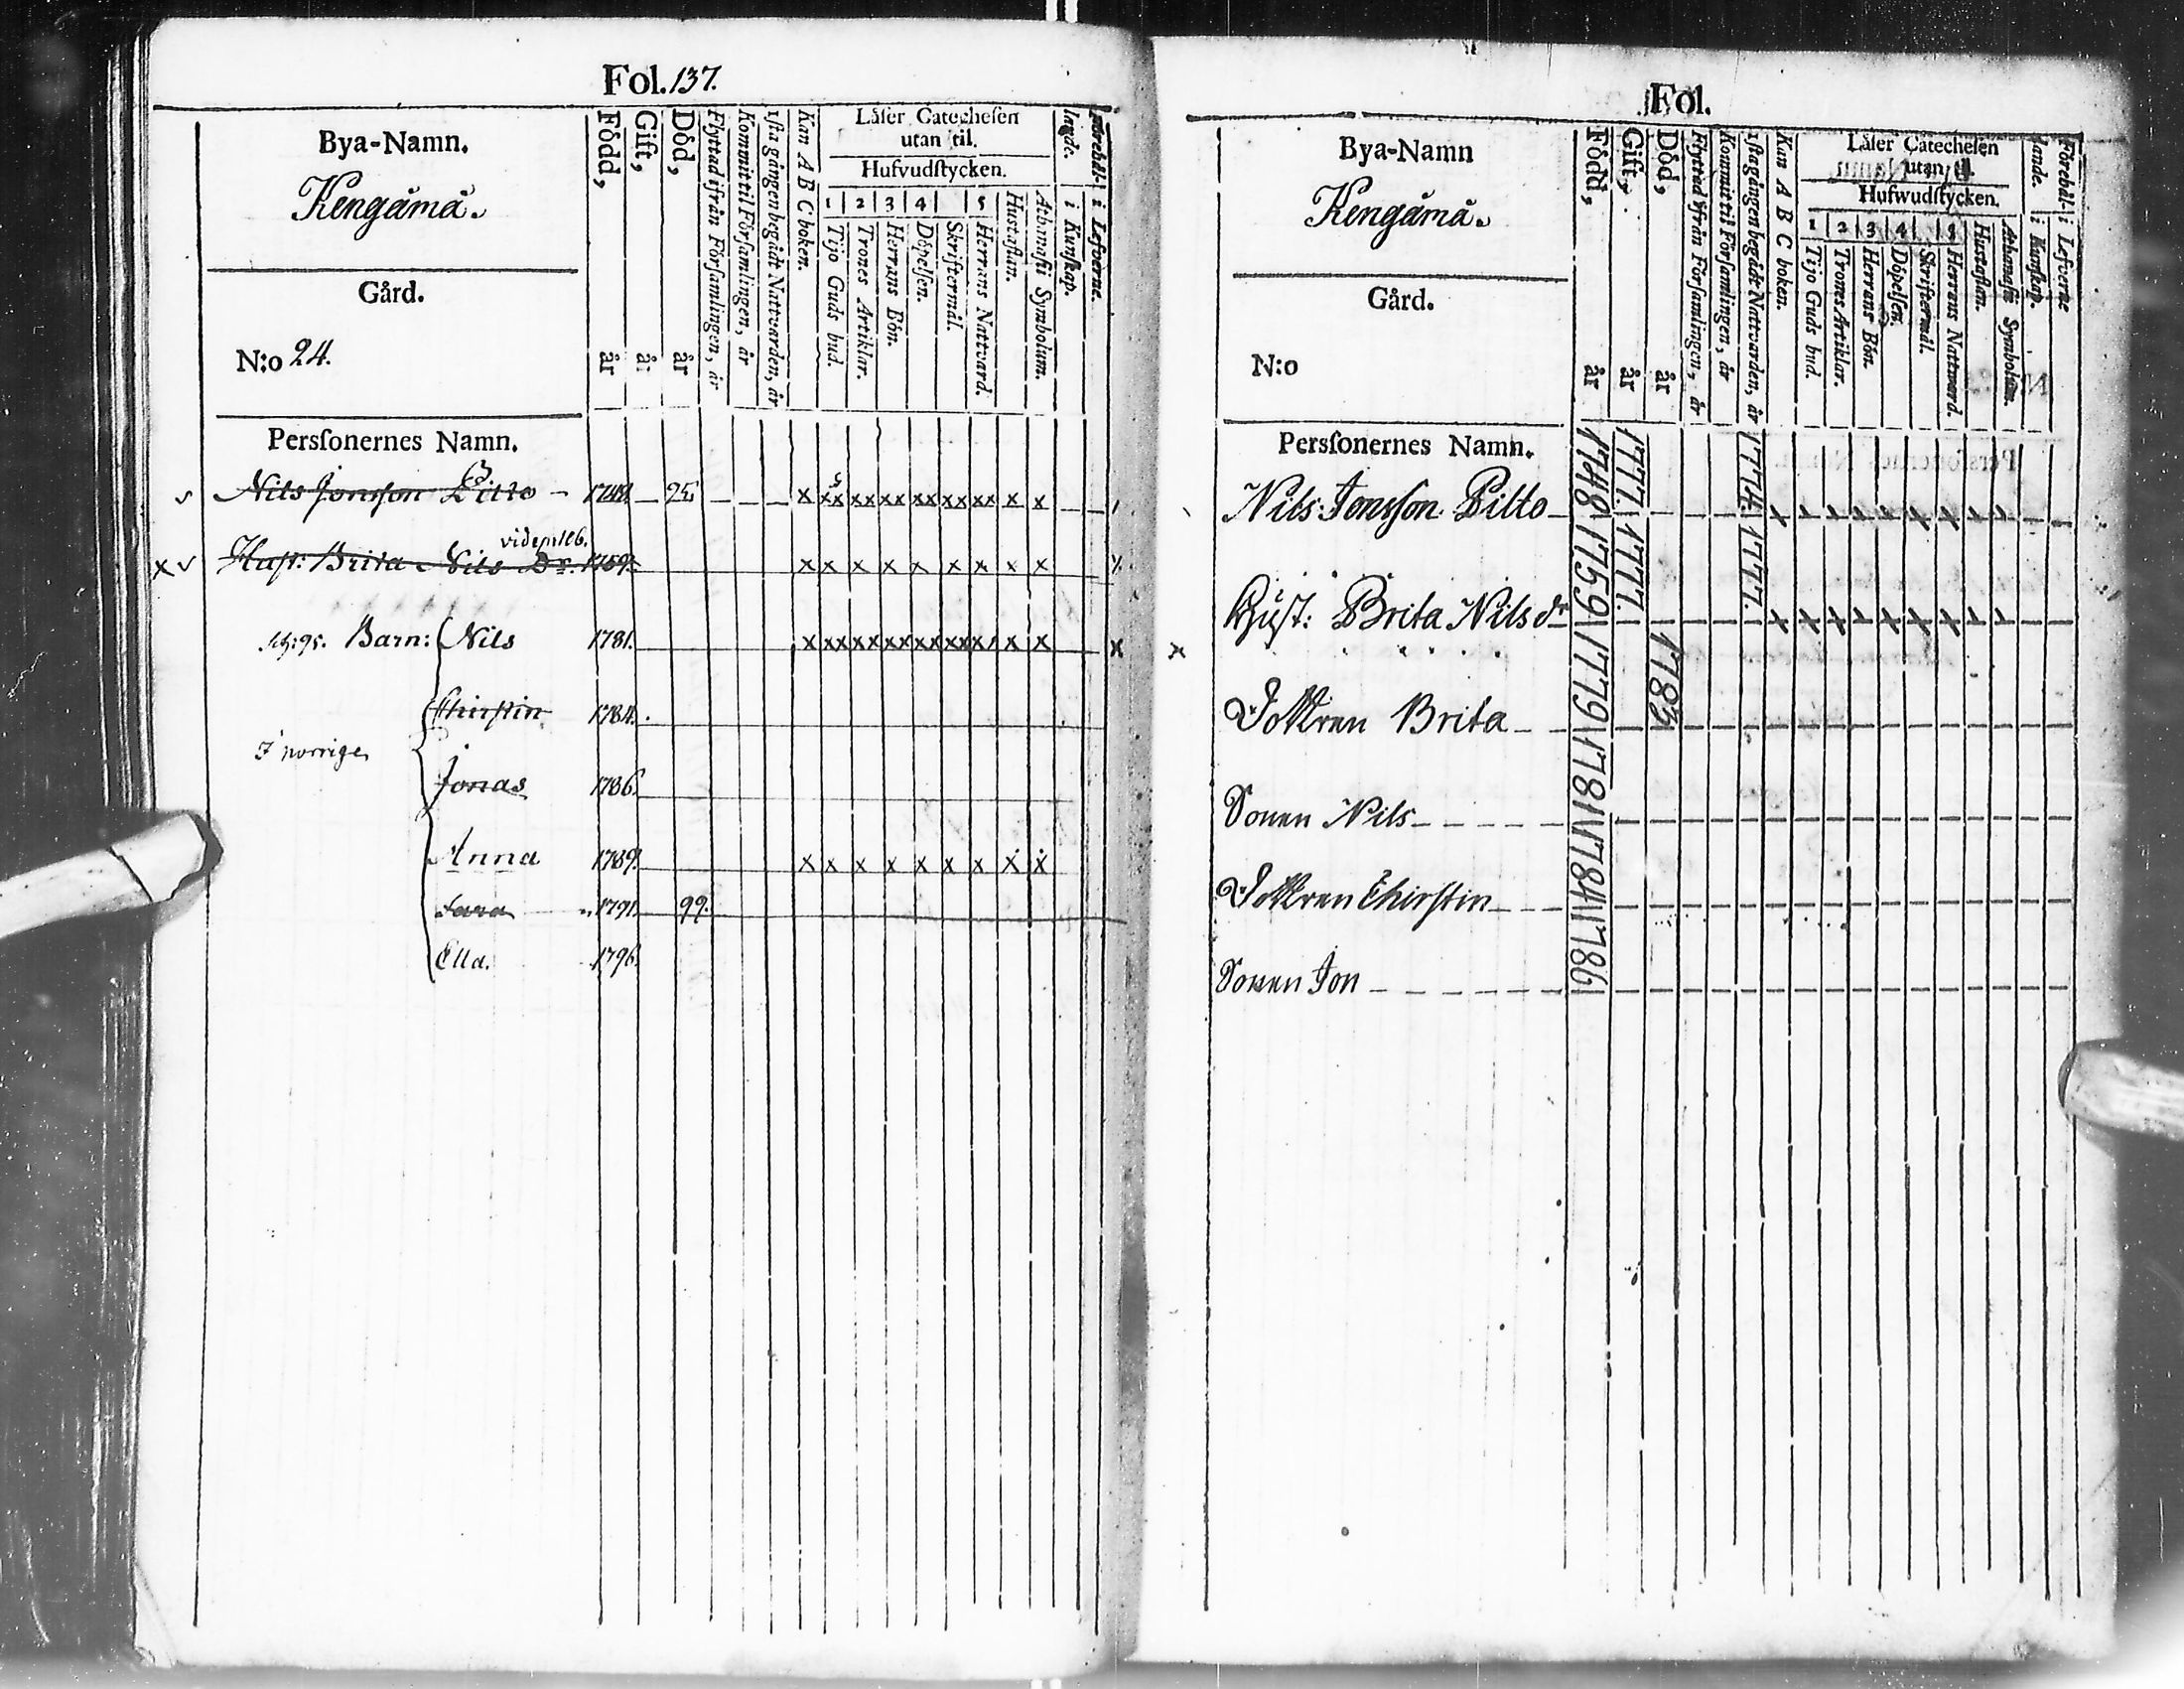 Fol. 137.
Bya-Namn.
Kengämä.
Gård.
N:o 24.
Perſonernes Namn.
Född, år
Gift, år
Död, år
Flyttad ifrån Församlingen, år
Kommit til Församlingen, år
1sta gången begådt Nattvarden, år
Kan A B C boken.
Låſer Catecheſen
utan til.
Hufvudſtycken.
1 2 3 4 5
Tijo Guds bud.
Trones Artiklar.
Herrans Bön.
Döpelſen.
Skriftermål.
Herrans Nattvard.
Hustaflan.
Athanaſii Symbolum.
Förehåll- i Lefverne.
lande. i Kunſkap.
Nils Jonsson Pilto - 1748. 95. x xx xx xx xx xx xx x x
vide p 116.
x Hust: Brita Nils Dr. 1759. x x x x x x x x x x
Barn: Nils 1781. x xx xx xx xx xx xx x x x
Chirstin 1784.
I norrige
Jonas 1786.
Anna 1789. x x x x x x x x x
Sara 1791. 99.
Ella. 1796.
Fol.
Bya-Namn
Kengämä.
Gård.
N:o
Perſonernes Namn.
Född, år
Gift, år
Död, år
Flyttad ifrån Församlingen, år
Kommit til Församlingen, år
1sta gången begådt Nattvarden, år
Kan A B C boken.
Låſer Catecheſen
utan til.
Hufwudſtycken.
1 2 3 4 5
Tijo Guds bud.
Trones Artiklar.
Herrans Bön.
Döpelſen.
Skriftermål.
Herrans Nattward.
Hustaflan.
Athanaſii Symbolum.
Förehåll- i Lefverne
lande. i Kunſkap.
Nils Jonsson Pilto 1748 1777. 1774.
x Hust: Brita Nils dr 1759 1777. 1777.
Dottren Brita 1779 1783
Sonen Nils 1781
Dottren Chirstin 1784
Sonen Jon 1786